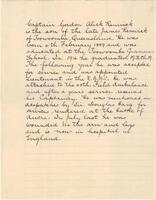 Captain Gordon Alick Rennick
is the son of the late James Rennick
of Toowoomba Queensland. He was
born 6th February 1889 and was
educated at the Toowoomba Grammar
School. In 1914 he graduated M.B. Ch.M.
The following year he was accepted
for service and was appointed
Lieutenant in the R.A.M.C. He was
attached to the Field Ambulance
and after a years service received
his Captaincy. He was mentioned in
despatches by Sir Douglas Haig for
services rendered at the battle of
In July last he was
wounded in the arm and leg
and is now in hospital in
England.